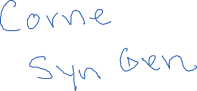 Corne
Syn Gen